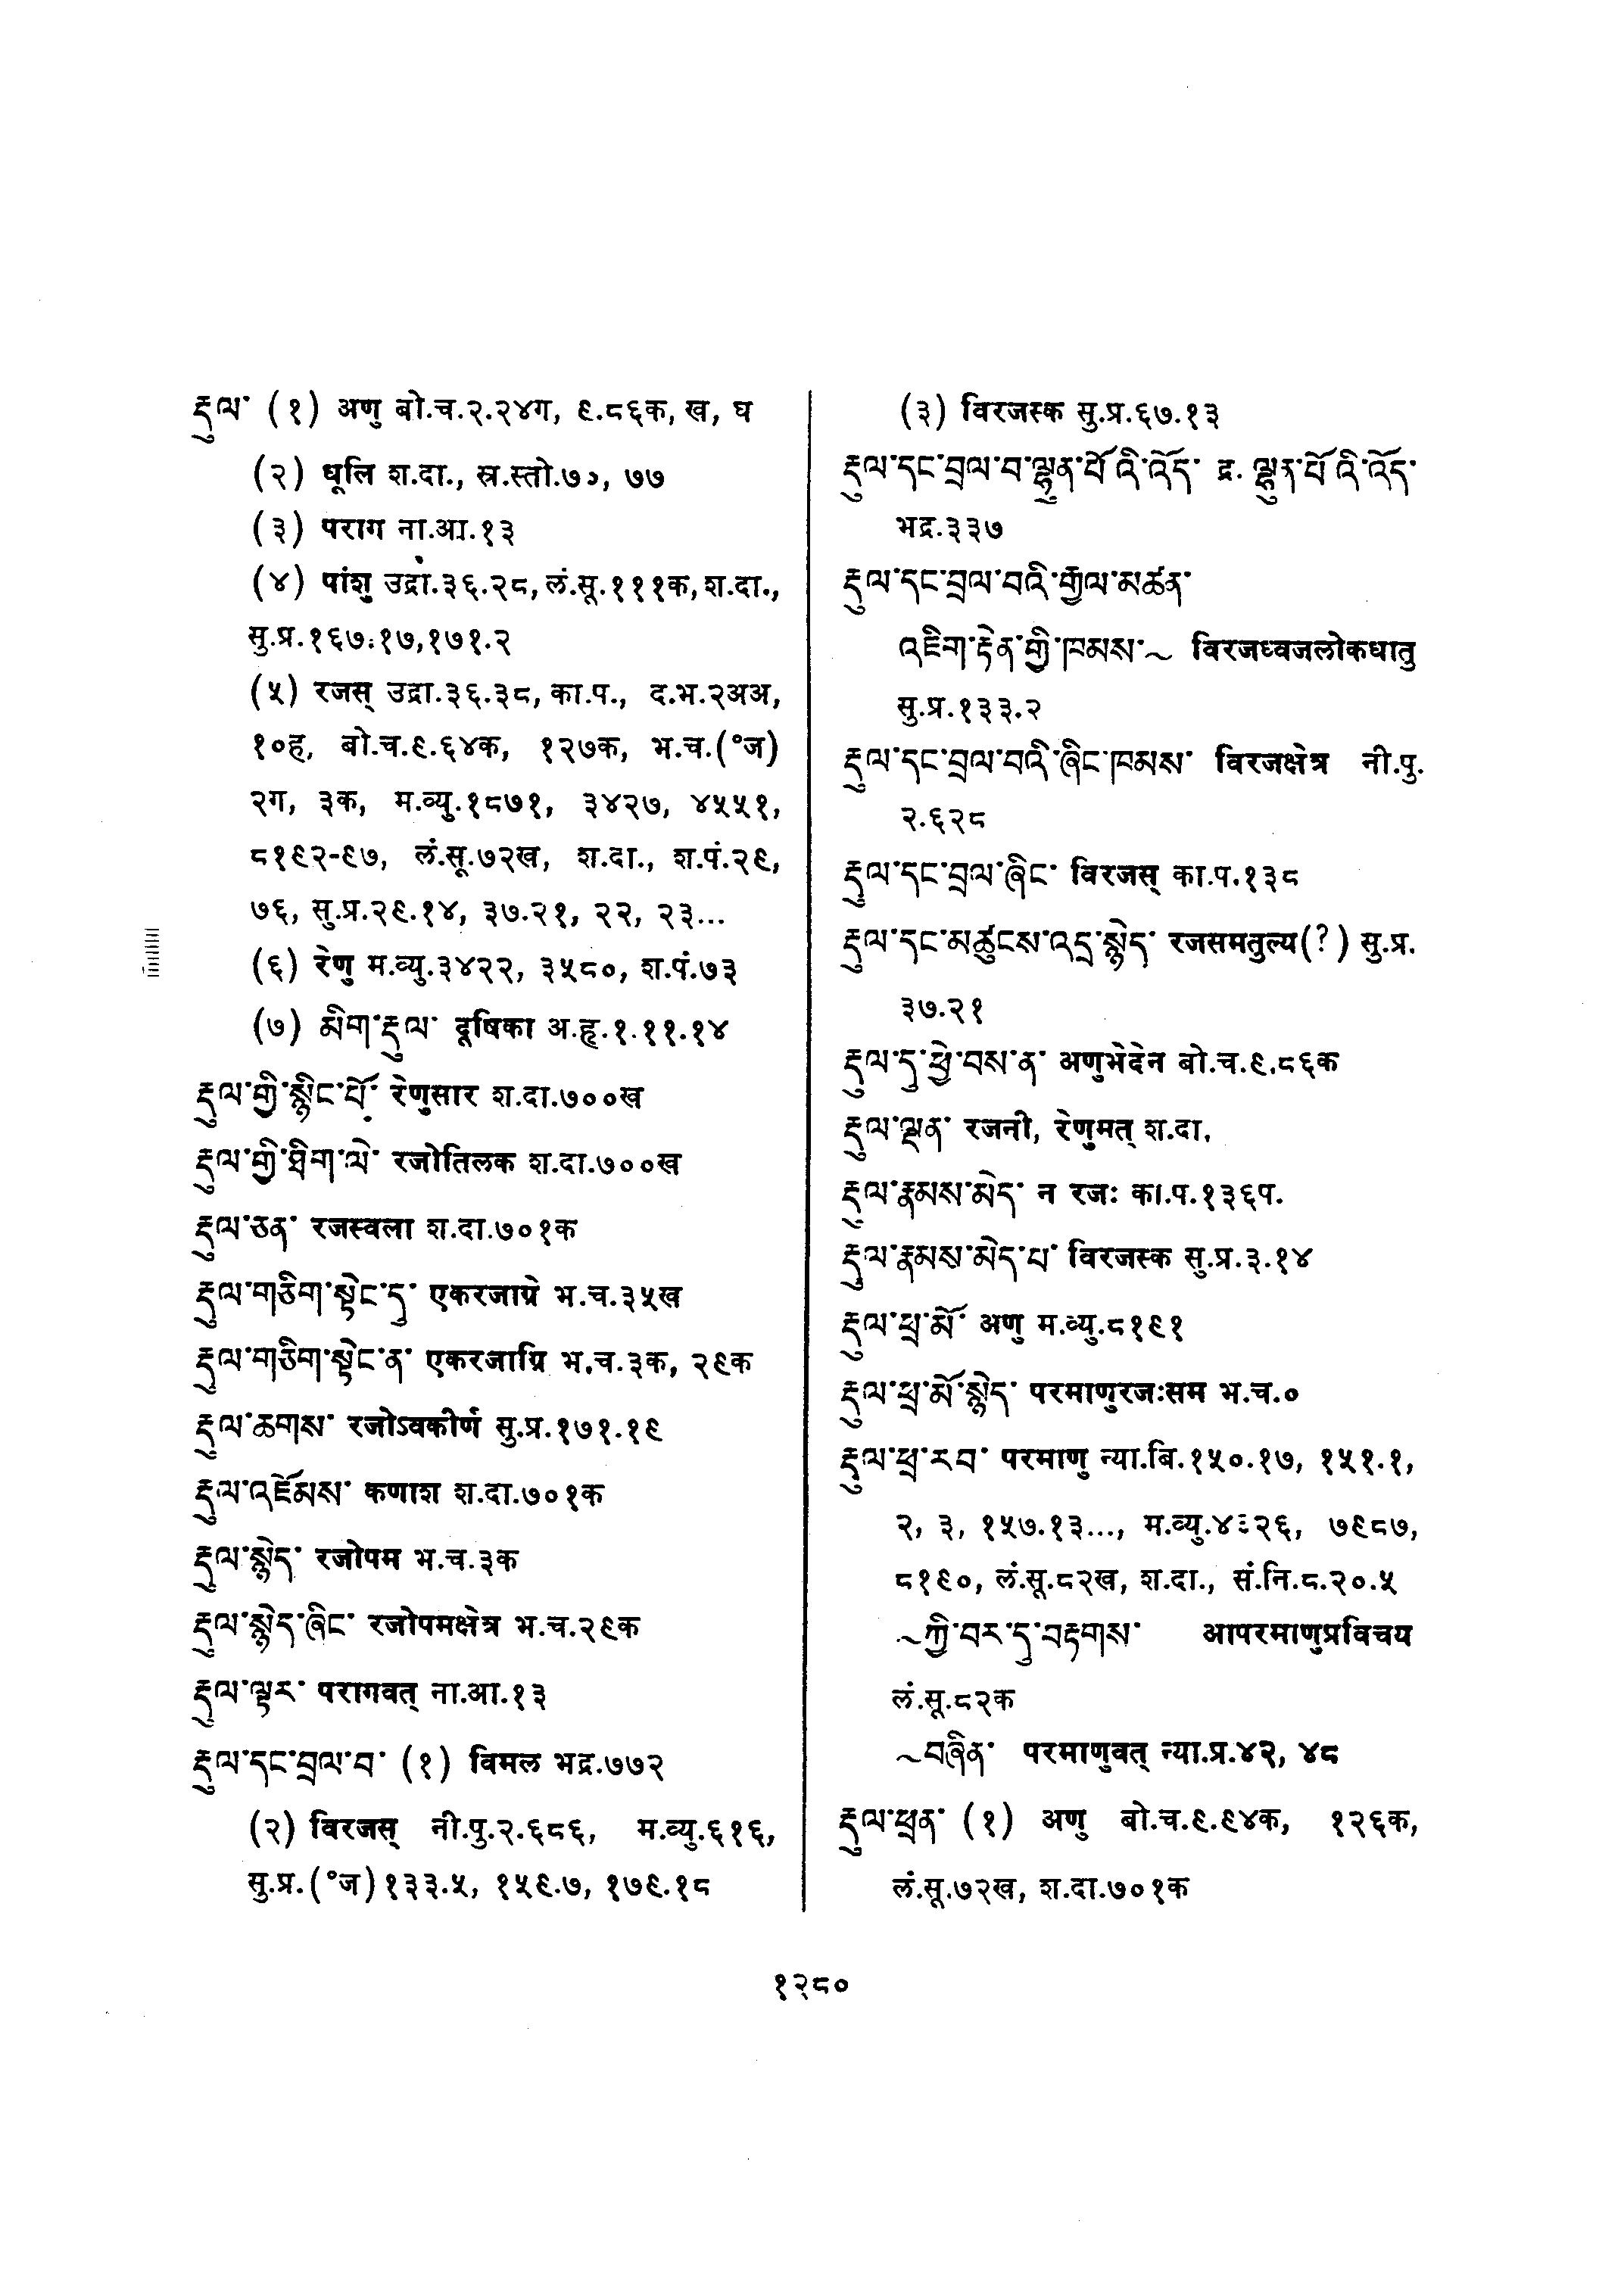 རྡུལ་ (१) अणु बो.च.२.२४ग, ९.८६क, ख, घ
(२) धूलि श.दा., स्र.स्तो.७०, ७७
(३) पराग ना.आ.१३
(४) पांशु उद्रा.३६.२८, लं.सू.१११क, श.दा.,
सु.प्र.१६७.१७,१७१.२
(५) रजस् उद्रा.३६.३८, का.प., द.भ.२अअ,
१०ह, बो.च.९.६४क, १२७क, भ.च.(°ज)
२ग, ३क, म.व्यु.१८७१, ३४२७, ४५५१,
८१९२-९७, लं.सू.७२ख, श.दा., श.पं.२९,
७६, सु.प्र.२९.१४, ३७.२१, २२, २३...
(६) रेणु म.व्यु.३४२२, ३५८०, श.पं.७३
(७) མིག་རྡུལ་ दूषिका अ.हृ.१.११.१४
རྡུལ་གྱི་སྙིང་པོ་ रेणुसार श.दा.७००ख
རྡུལ་གྱི་ཐིག་ལེ་ रजोतिलक श.दा.७००ख
རྡུལ་ཅན་ रजस्वला श.दा.७०१क
རྡུལ་གཅིག་སྟེང་དུ་ एकरजाग्रे भ.च.३५ख
རྡུལ་གཅིག་སྟེང་ན་ एकरजाग्रि भ.च.३क, २९क
རྡུལ་ཆགས་ रजोऽवकीर्ण सु.प्र.१७१.१९
རྡུལ་འཇོམས་ कणाश श.दा.७०१क
རྡུལ་སྙེད་ रजोपम भ.च.३क
རྡུལ་སྙེད་ཞིང་ रजोपमक्षेत्र भ.च.२९क
རྡུལ་ལྟར་ परागवत् ना.आ.१३
རྡུལ་དང་བྲལ་བ་ (१) विमल भद्र.७७२
(२) विरजस् नी.पु.२.६८६, म.व्यु.६१६,
सु.प्र.(°ज)१३३.५, १५९.७, १७९.१८
(३) विरजस्क सु.प्र.६७.१३
རྡུལ་དང་བྲལ་བ་ལྷུན་པོ་འི་འོད་ द्र. ལྷུན་པོ་འི་འོད་
भद्र.३३७
རྡུལ་དང་བྲལ་བའི་རྒྱལ་མཚན་
འཇིག་རྟེན་གྱི་ཁམས་~ विरजध्वजलोकधातु
सु.प्र.१३३.२
རྡུལ་དང་བྲལ་བའི་ཞིང་ཁམས་ विरजक्षेत्र नी.पु.
२.६२८
རྡུལ་དང་བྲལ་ཞིང་ विरजस् का.प.१३८
རྡུལ་དང་མཚུངས་འདྲ་སྙེད་ रजसमतुल्य(?) सु.प्र.
३७.२१
རྡུལ་དུ་ཕྱེ་བས་ན་ अणुभेदेन बो.च.९.८६क
རྡུལ་ལྡན་ रजनी, रेणुमत् श.दा.
རྡུལ་རྣམས་མེད་ न रजः का.प.१३६प.
རྡུལ་རྣམས་མེད་པ་ विरजस्क सु.प्र.३.१४
རྡུལ་ཕྲ་མོ་ अणु म.व्यु.८१९१
རྡུལ་ཕྲ་མོ་སྙེད་ परमाणुरजःसम भ.च.०
རྡུལ་ཕྲ་རབ་ परमाणु न्या.बि.१५०.१७, १५१.१,
२, ३, १५७.१३..., ७९८७,
८१९०, लं.सू.८२ख, श.दा., सं.नि.८.२०.५
~ཀྱི་བར་དུ་བརྟགས་ आपरमाणुप्रविचय
लं.सू.८२क
~བཞིན་ परमाणुवत् न्या.प्र.४२, ४८
རྡུལ་ཕྲན་ (१) अणु बो.च.९.९४क, १२६क,
लं.सू.७२ख, श.दा.७०१क
१२८०